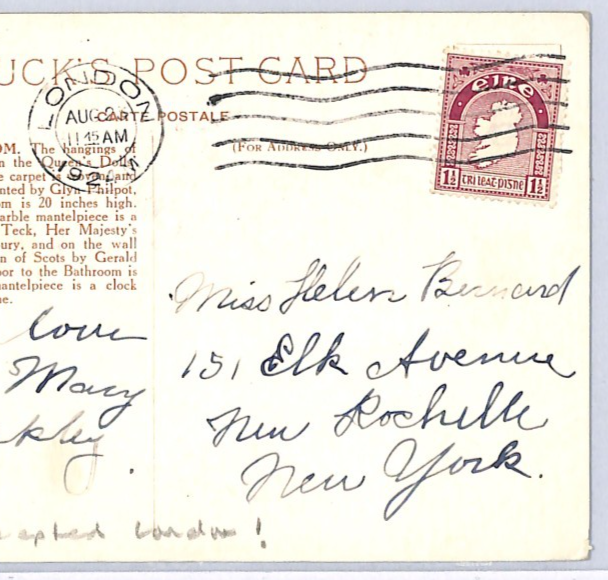 UCK'S POST CARD
CARTE POSTALE
(FOR ADDRESS ONLY.)
LONDON
AUG 2
11 45 AM
192
éire
1½ TRI LEAT-PISNE 1½
OM. The hangings of
n the Queen's Dolls'
e carpet is woven and
nted by Glyn Philpot,
om is 20 inches high.
arble mantelpiece is a
Teck, Her Majesty's
ury, and on the wall
n of Scots by Gerald
oor to the Bathroom is
mantelpiece is a clock
ne.
love
Mary
kley.
Miss Helen Bernard
151 Elk Avenue
New Rochelle
New York.
epted London!